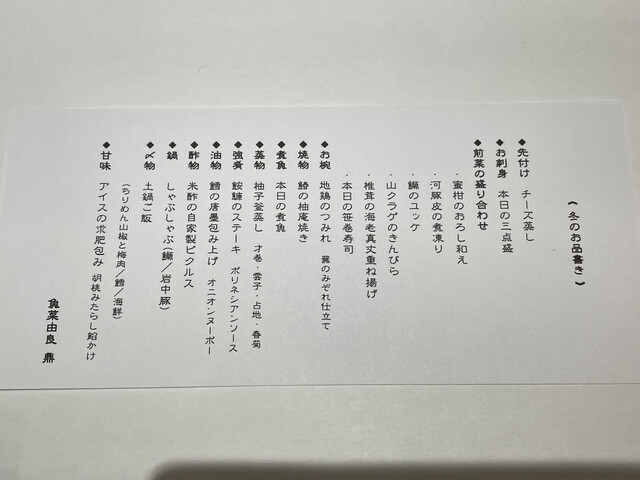 （冬のお品書き）
◆先付け　チーズ蒸し
◆お刺身　本日の三点盛
◆前菜の盛り合わせ
・蜜柑のおろし和え
・河豚皮の煮凍り
・鰤のユッケ
・山クラゲのきんぴら
・椎茸の海老真丈重ね揚げ
・本日の笹巻寿司
◆お椀　地鶏のつみれ　蕪のみぞれ仕立て
◆焼物　鰆の柚庵焼き
◆煮魚　本日の煮魚
◆蒸物　柚子釜蒸し　才巻・雲子・占地・春菊
◆強肴　鮟鱇のステーキ　ポリネシアンソース
◆油物　鱈の唐墨包み上げ　オニオンヌーボー
◆酢物　米酢の自家製ピクルス
◆鍋　しゃぶしゃぶ（鰤／岩中豚）
◆〆物　土鍋ご飯
（ちりめん山椒と梅肉／鱈／海鮮）
◆甘味　アイスの求肥包み　胡桃みたらし餡かけ
魚菜由良 鼎